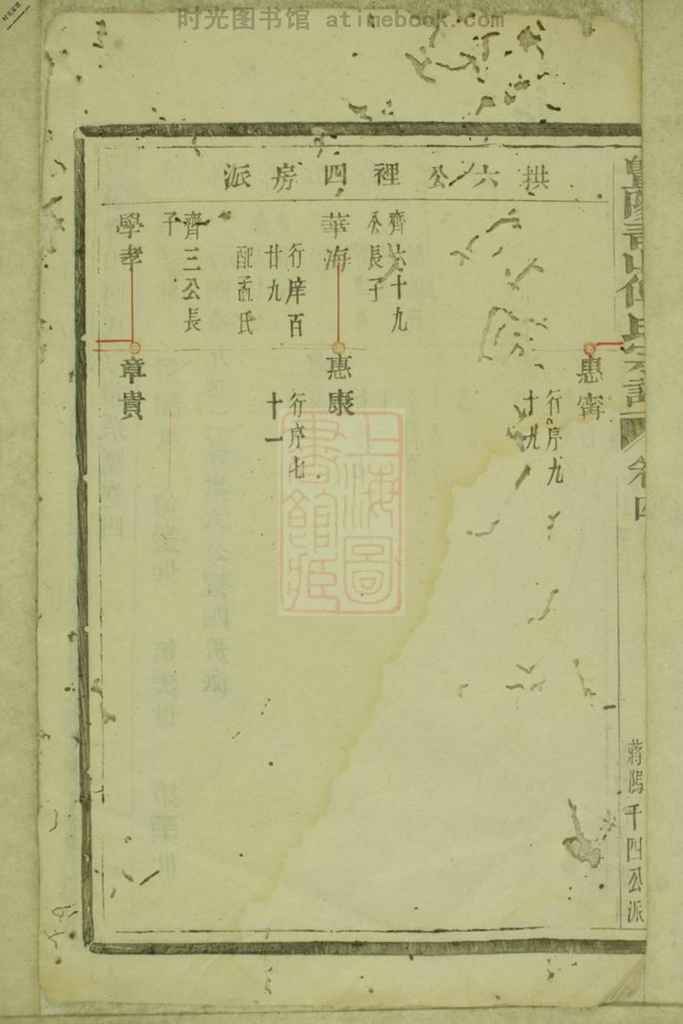 时光图书馆 atimebook.com
拱六公裡四房派
惠甯
行序九
十九
齊六十九
公長子
華海
行庠百
廿九
配孟氏
惠康
行序七
十一
齊三公長
子
學孝
章貴
卷四
蔣隖千四公派
上海圖
書館藏